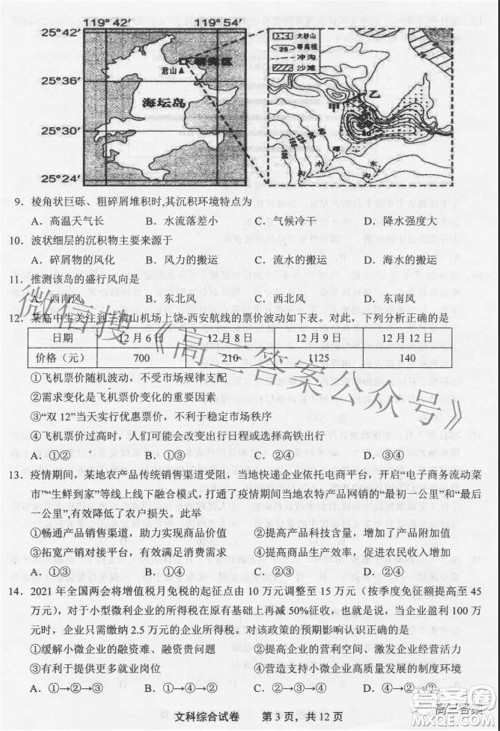 119°42′ 119°54′
25°42′
25°36′
25°30′
25°24′
君山
海坛岛
图例
大砂山
25 等高线
冲沟
沙滩
甲 乙
9. 棱角状巨砾、粗碎屑堆积时,其沉积环境特点为
A. 高温天气长 B. 水流落差小 C. 气候冷干 D. 降水强度大
10. 波状细层的沉积物主要来源于
A. 碎屑物的风化 B. 风力的搬运 C. 流水的搬运 D. 海水的搬运
11. 推测该岛的盛行风向是
A. 西南风 B. 东北风 C. 西北风 D. 东南风
12. 某高中生关注到上饶-西安航线的票价波动如下表。对此，下列分析正确的是
日期 12月6日 12月8日 12月9日 12月12日
价格（元） 700 210 1125 140
①飞机票价随机波动，不受市场规律支配
②需求变化是飞机票价变化的重要因素
③“双12”当天实行优惠票价，不利于稳定市场秩序
④飞机票价过高时，人们可能会改变出行日程或选择高铁出行
A. ①③ B. ①④ C. ②③ D. ②④
13. 疫情期间，某地农产品传统销售渠道受阻，当地快递企业依托电商平台，开启“电子商务流动菜
市”“生鲜到家”等线上线下融合模式，打通了疫情期间当地农特产品网销的“最初一公里”和“最后
一公里”，有效降低了农户损失。此举
①畅通产品销售渠道，助力实现商品价值 ②提高产品安全质量，增加产品附加值
③拓宽产销对接平台，有效满足消费需求 ④提高商品生产效率，促进农民收入增加
A. ①③ B. ①④ C. ②③ D. ②④
14. 2021年全国两会将增值税月免税的起征点由10万元调整至15万元（按季度免征额提高至45
万元），对于小型微利企业的所得税在原有基础上再减50%征收，也就是说，当企业盈利100万
元时，企业只需缴纳2.5万元企业所得税。对该政策的预期影响认识正确的是
①缓解小微企业的融资难、融资贵问题 ②降低小微企业的税收负担
③有利于提供更多就业岗位 ④营造支持小微企业高质量发展的环境
A. ①→②→③ B. ①→②→④ C. ①→③→④ D. ②→③→④
文科综合试卷 第3页，共12页
微信搜《高三答案公众号》
高三答案